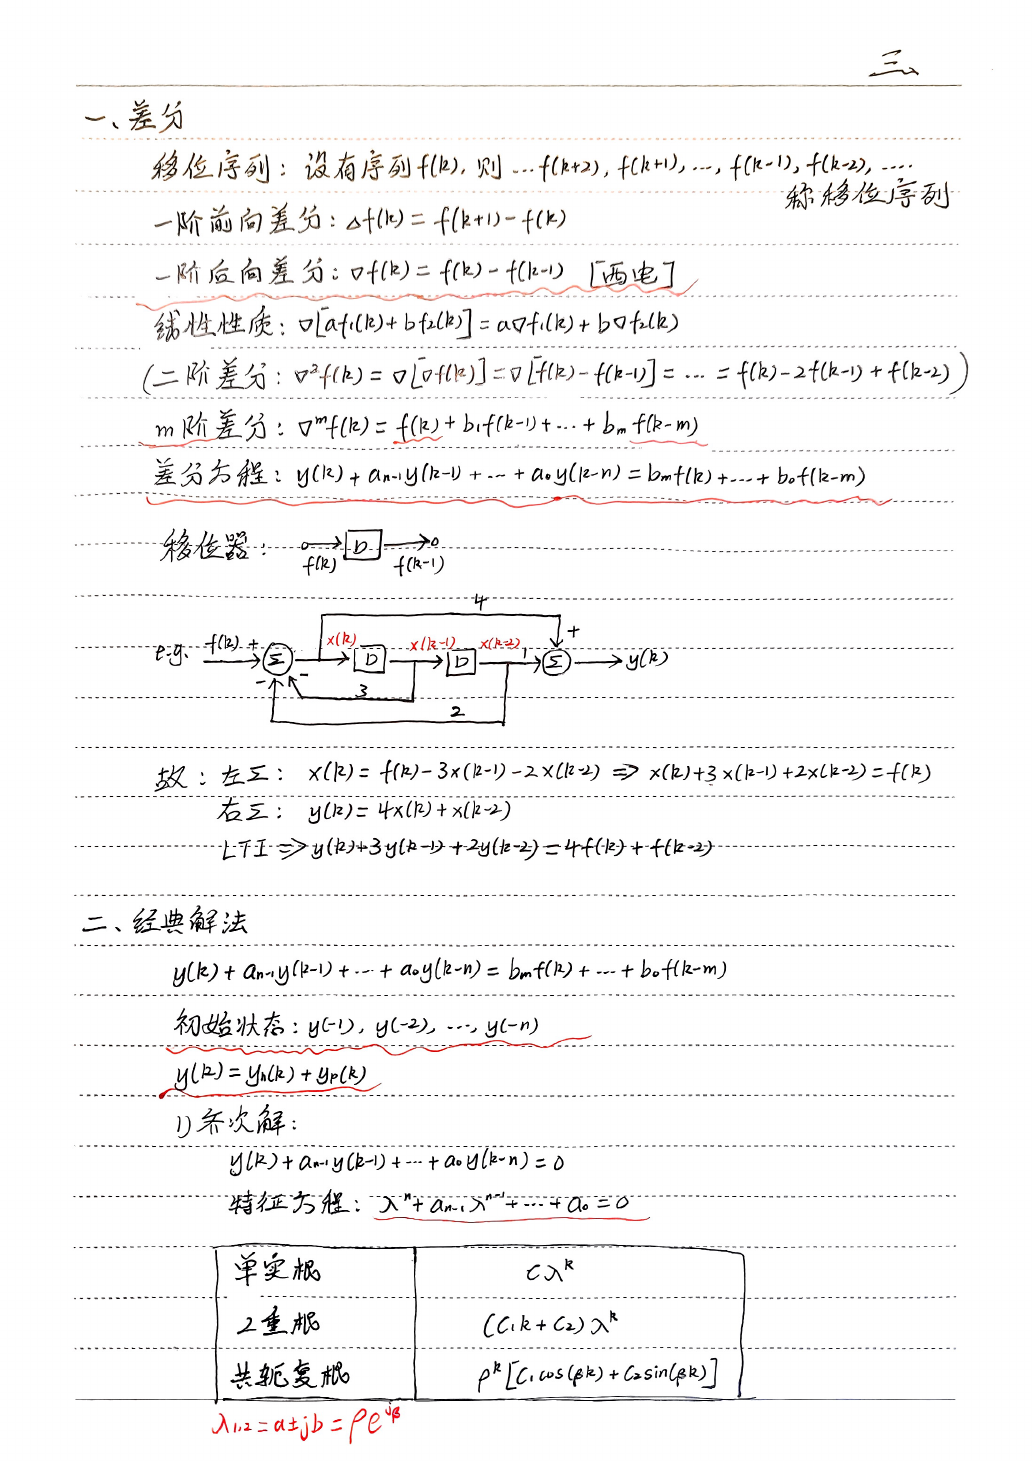 三、
一、差分
移位序列：设有序列f(k), 则 …f(k+2), f(k+1), …, f(k-1), f(k-2), ….
称移位序列
一阶前向差分：△f(k) = f(k+1) - f(k)
一阶后向差分：▽f(k) = f(k) - f(k-1) [西电]
线性性质：▽[af₁(k) + bf₂(k)] = a▽f₁(k) + b▽f₂(k)
(二阶差分：▽²f(k) = ▽[▽f(k)] = ▽[f(k) - f(k-1)] = … = f(k) - 2f(k-1) + f(k-2))
m阶差分：▽ᵐf(k) = f(k) + b₁f(k-1) + … + bₘf(k-m)
差分方程：y(k) + aₙ₋₁y(k-1) + … + a₀y(k-n) = bₘf(k) + … + b₀f(k-m)
移位器： D
f(k) f(k-1)
4
e.g. f(k) + Σ x(k) D x(k-1) D x(k-2) 1 + Σ y(k)
- -
3
2
故：左Σ： x(k) = f(k) - 3x(k-1) - 2x(k-2) ⇒ x(k) + 3x(k-1) + 2x(k-2) = f(k)
右Σ： y(k) = 4x(k) + x(k-2)
LTI ⇒ y(k) + 3y(k-1) + 2y(k-2) = 4f(k) + f(k-2)
二、经典解法
y(k) + aₙ₋₁y(k-1) + … + a₀y(k-n) = bₘf(k) + … + b₀f(k-m)
初始状态：y(-1), y(-2), …, y(-n)
y(k) = yₕ(k) + yₚ(k)
1) 齐次解：
y(k) + aₙ₋₁y(k-1) + … + a₀y(k-n) = 0
特征方程：λⁿ + aₙ₋₁λⁿ⁻¹ + … + a₀ = 0
单实根 Cλᵏ
2重根 (C₁k + C₂)λᵏ
共轭复根 ρᵏ[C₁cos(βk) + C₂sin(βk)]
λ₁,₂ = a±jb = ρe^jβ